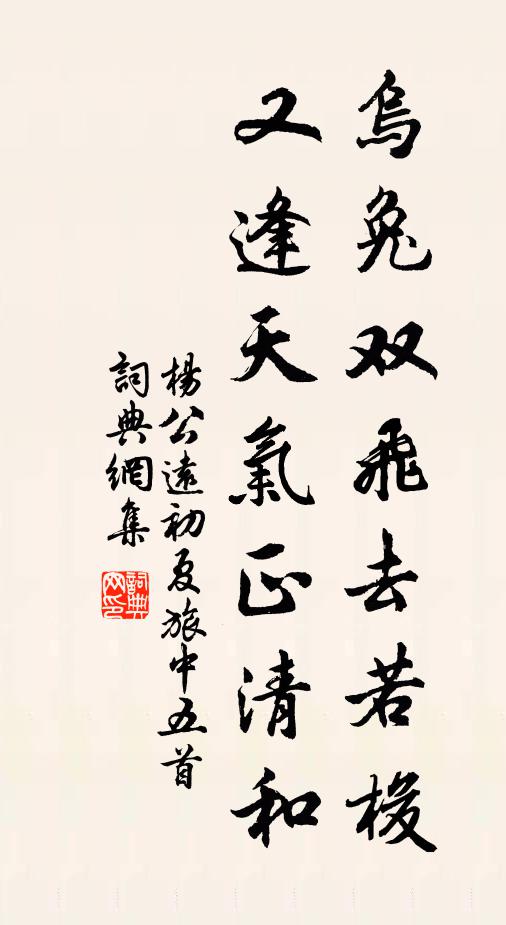 烏兔双飛去若梭
又逢天氣正清和
楊公遠初夏旅中五首
詞典網集
詞典網印